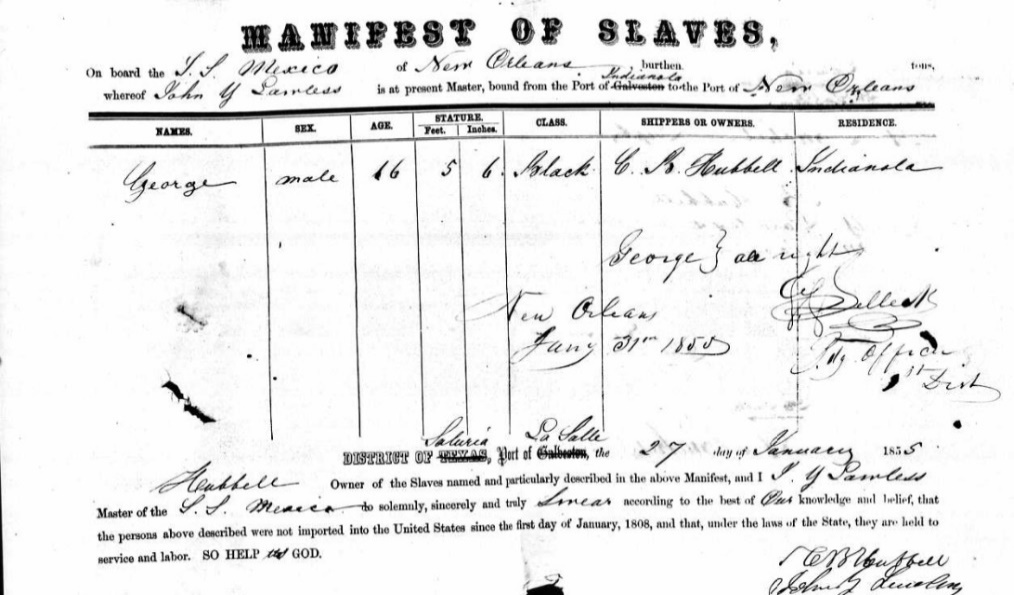 MANIFEST OF SLAVES,
On board the S. S. Mexico of New Orleans burthen tons,
Indianola
whereof John Y Lawless is at present Master, bound from the Port of Galveston to the Port of New Orleans
NAMES. SEX. AGE. STATURE. CLASS. SHIPPERS OR OWNERS. RESIDENCE.
Feet. Inches.
George male 16 5 6. Black C. B. Hubbell Indianola
George } all right
New Orleans
Jany 31st 1855
Bdg Officer
1st Dist
Saluria La Salle
DISTRICT OF TEXAS, Port of Galveston, the 27 day of January 1855
Hubbell Owner of the Slaves named and particularly described in the above Manifest, and I J. Y Lawless
Master of the S. S. Mexico do solemnly, sincerely and truly Swear according to the best of Our knowledge and belief, that
the persons above described were not imported into the United States since the first day of January, 1808, and that, under the laws of the State, they are held to
service and labor. SO HELP GOD.
C B Hubbell
John Y Lawless